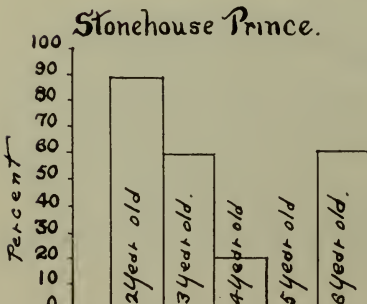 Stonehouse Prince.
100
90
80
70
60
50
40
30
20
10
0
Percent
2 Year old
3 Year old.
4 Year old
5 Year old
Year old.